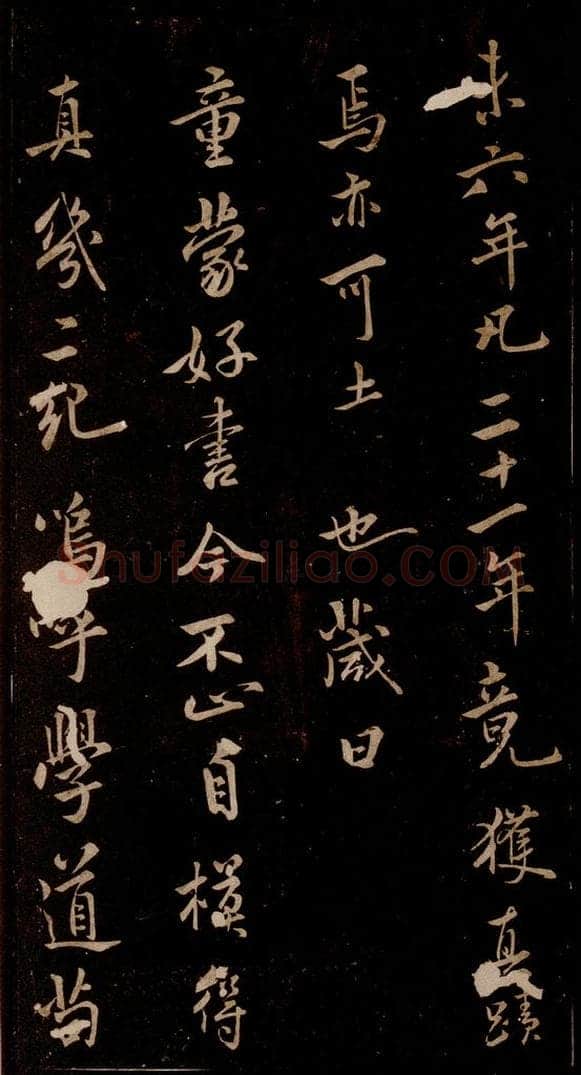 未六年凡二十一年竟獲真蹟
焉亦可土也歲日
童蒙好書今不止自模得
真幾二紀嗚呼學道苟
shufaziliao.com